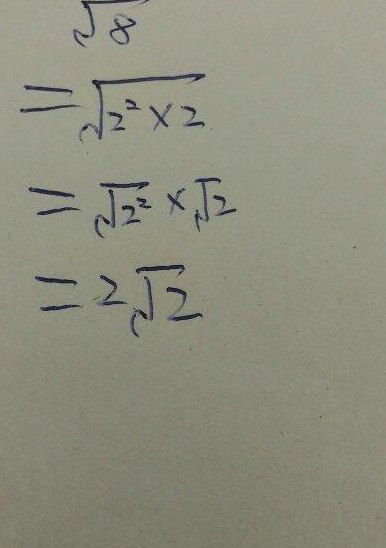 √8
= √2² × 2
= √2² × √2
= 2√2